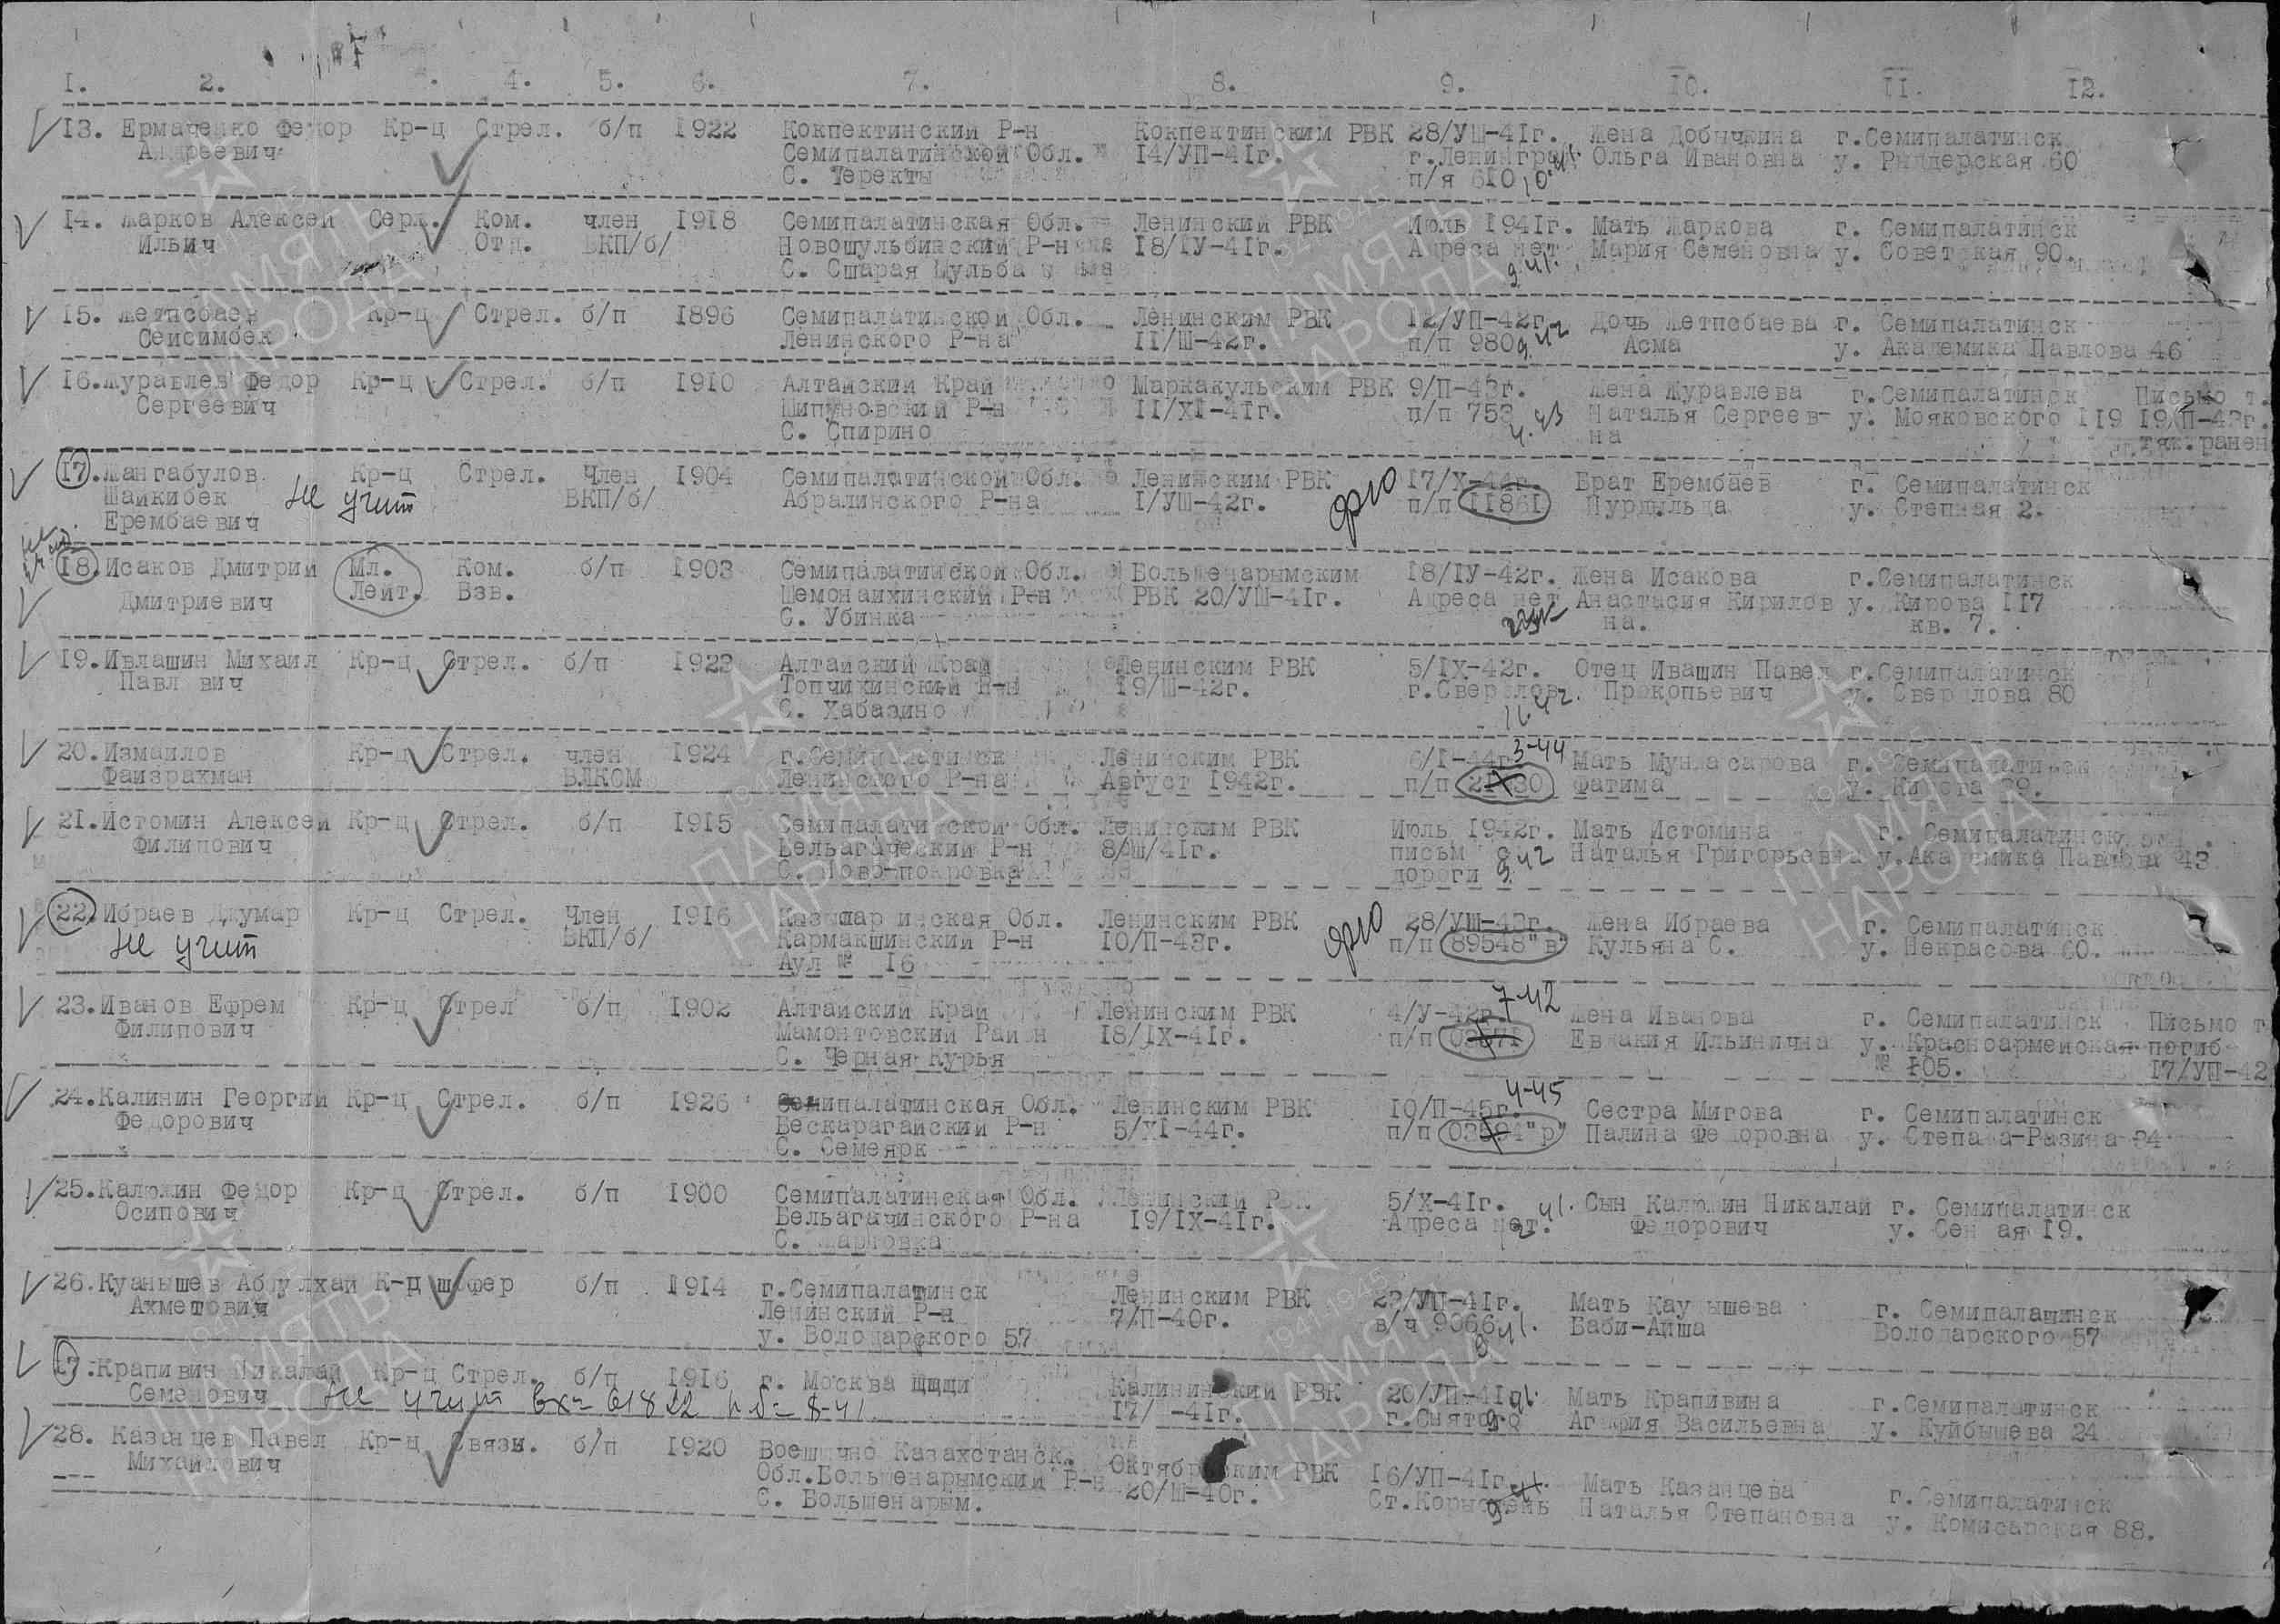 1. 2. 4. 5. 6. 7. 8. 9. 10. 11. 12.
13. Ермаченко Федор Кр-ц Стрел. б/п 1922 Кокпектинский Р-н Кокпектинским РВК 28/УШ-41г. Жена Добычкина г.Семипалатинск
Андреевич Семипалатинской Обл. 14/УП-41г. г.Ленинград Ольга Ивановна у. Риддерская 60
С. Теректы п/я 610 10.41.
14. Жарков Алексей Серж. Ком. член 1918 Семипалатинская Обл. Ленинский РВК Июль 1941г. Мать Жаркова г. Семипалатинск
Ильич Отд. ВКП/б/ Новошульбинский Р-н 18/IУ-41г. Адреса нет Мария Семеновна у. Советская 90.
С. Сшарая Шульба 9.41.
15. Жетпсбаев Кр-ц Стрел. б/п 1896 Семипалатинской Обл. Ленинским РВК 12/УП-42г. Дочь Жетпсбаева г. Семипалатинск
Сейсимбек Ленинского Р-на 11/Ш-42г. п/п 980 9.42 Асма у. Академика Павлова 46
16.Журавлев Федор Кр-ц Стрел. б/п 1910 Алтайский Край Маркакульским РВК 9/П-43г. Жена Журавлева г.Семипалатинск Письмо т.
Сергеевич Шипуновский Р-н 11/XI-41г. п/п 753 Наталья Сергеев- у. Мояковского 119 19/П-43г.
С. Спирино 4.43 на тяж.ранен
17.Жангабулов Кр-ц Стрел. Член 1904 Семипалатинской Обл. Ленинским РВК 17/X-44г. Брат Ерембаев г. Семипалатинск
Шайкибек Не учит ВКП/б/ Абралинского Р-на 1/УШ-42г. п/п 11861 Нурдыльда у. Степная 2.
Ерембаевич
18.Исаков Дмитрий Мл. Ком. б/п 1903 Семипалатинской Обл. Большенарымским 18/IУ-42г. Жена Исакова г.Семипалатинск
Дмитриевич Лейт. Взв. Шемонаихинский Р-н РВК 20/УШ-41г. Адреса нет Анастасия Кирилов у. Кирова 117
С. Убинка на. кв. 7.
19.Ивлашин Михаил Кр-ц Стрел. б/п 1923 Алтайский Край Ленинским РВК 5/IX-42г. Отец Ивашин Павел г.Семипалатинск
Павл вич Топчихинский Р-н 19/Ш-42г. г.Свердлов. Прокопьевич у. Свердлова 80
С. Хабазино 11.42
20.Измаилов Кр-ц Стрел. член 1924 г.Семипалатинск Ленинским РВК 6/I-44г. 3-44 Мать г. Семипалатинск
Фаизрахман ВЛКСМ Ленинского Р-на Август 1942г. п/п Фатима у. Кирова
21.Истомин Алексей Кр-ц Стрел. б/п 1915 Семипалатинской Обл. Ленинским РВК Июль 1942г. Мать Истомина г. Семипалатинск
Филипович Бельагачский Р-н 8/Ш/41г. письм с 9.42 Наталья Григорьевна у.Академика Павлова 43
С. Ново-покровка дороги
22.Ибраев Джумар Кр-ц Стрел. Член 1916 Обл. Ленинским РВК 28/УШ-43г. Жена Ибраева г. Семипалатинск
Не учит ВКП/б/ Кармакшинский Р-н 10/П-43г. п/п 89548"в" Кульяна С. у. Некрасова 60.
Аул № 16
23.Иванов Ефрем Кр-ц Стрел б/п 1902 Алтайский Край Ленинским РВК 4/У-42г. 7-42 Жена Иванова г. Семипалатинск Письмо т
Филипович Мамонтовский Район 18/IX-41г. п/п Евдакия Ильинична у. Красноармейская погиб
С. Черная Курья № 105. 17/УП-42
24.Калинин Георгий Кр-ц Стрел. б/п 1926 Семипалатинская Обл. Ленинским РВК 10/П-45г. 4-45 Сестра Мигова г. Семипалатинск
Федорович Бескарагайский Р-н 5/XI-44г. п/п Палина Федоровна у. Степана-Разина 84
С. Семеярк
25.Калюжин Федор Кр-ц Стрел. б/п 1900 Семипалатинская Обл. Ленинский РВК 5/X-41г. Сын Калюжин Никалай г. Семипалатинск
Осипович Бельагачинского Р-на 19/IX-41г. Адреса нет. Федорович у. Сен ая 19.
26.Куанышев Абдулхай К-ц шофер б/п 1914 г.Семипалатинск Ленинским РВК 22/УП-41г. Мать Кауышева г. Семипалашинск
Ахметович Ленинский Р-н 7/П-40г. в/ч 9366 Баби-Айша Володарского 57
у. Володарского 57
17.Крапивин Никалай Кр-ц Стрел. б/п 1916 г. Москва Калининский РВК 20/УП-41 Мать Крапивина г.Семипалатинск
Семенович Не учит вх= 61822 п б= 8-41 17/ -41г. Васильевна у. Куйбышева 24
28. Казанцев Павел Кр-ц Связи. б/п 1920 Казахстанск. Октябрьским РВК 16/УП-41г. Мать Казанцева г.Семипалатинск
Михайлович Обл.Большенарымский Р-н 20/Ш-40г. Ст. Наталья Степановна у. Комисарская 88.
С. Большенарым.